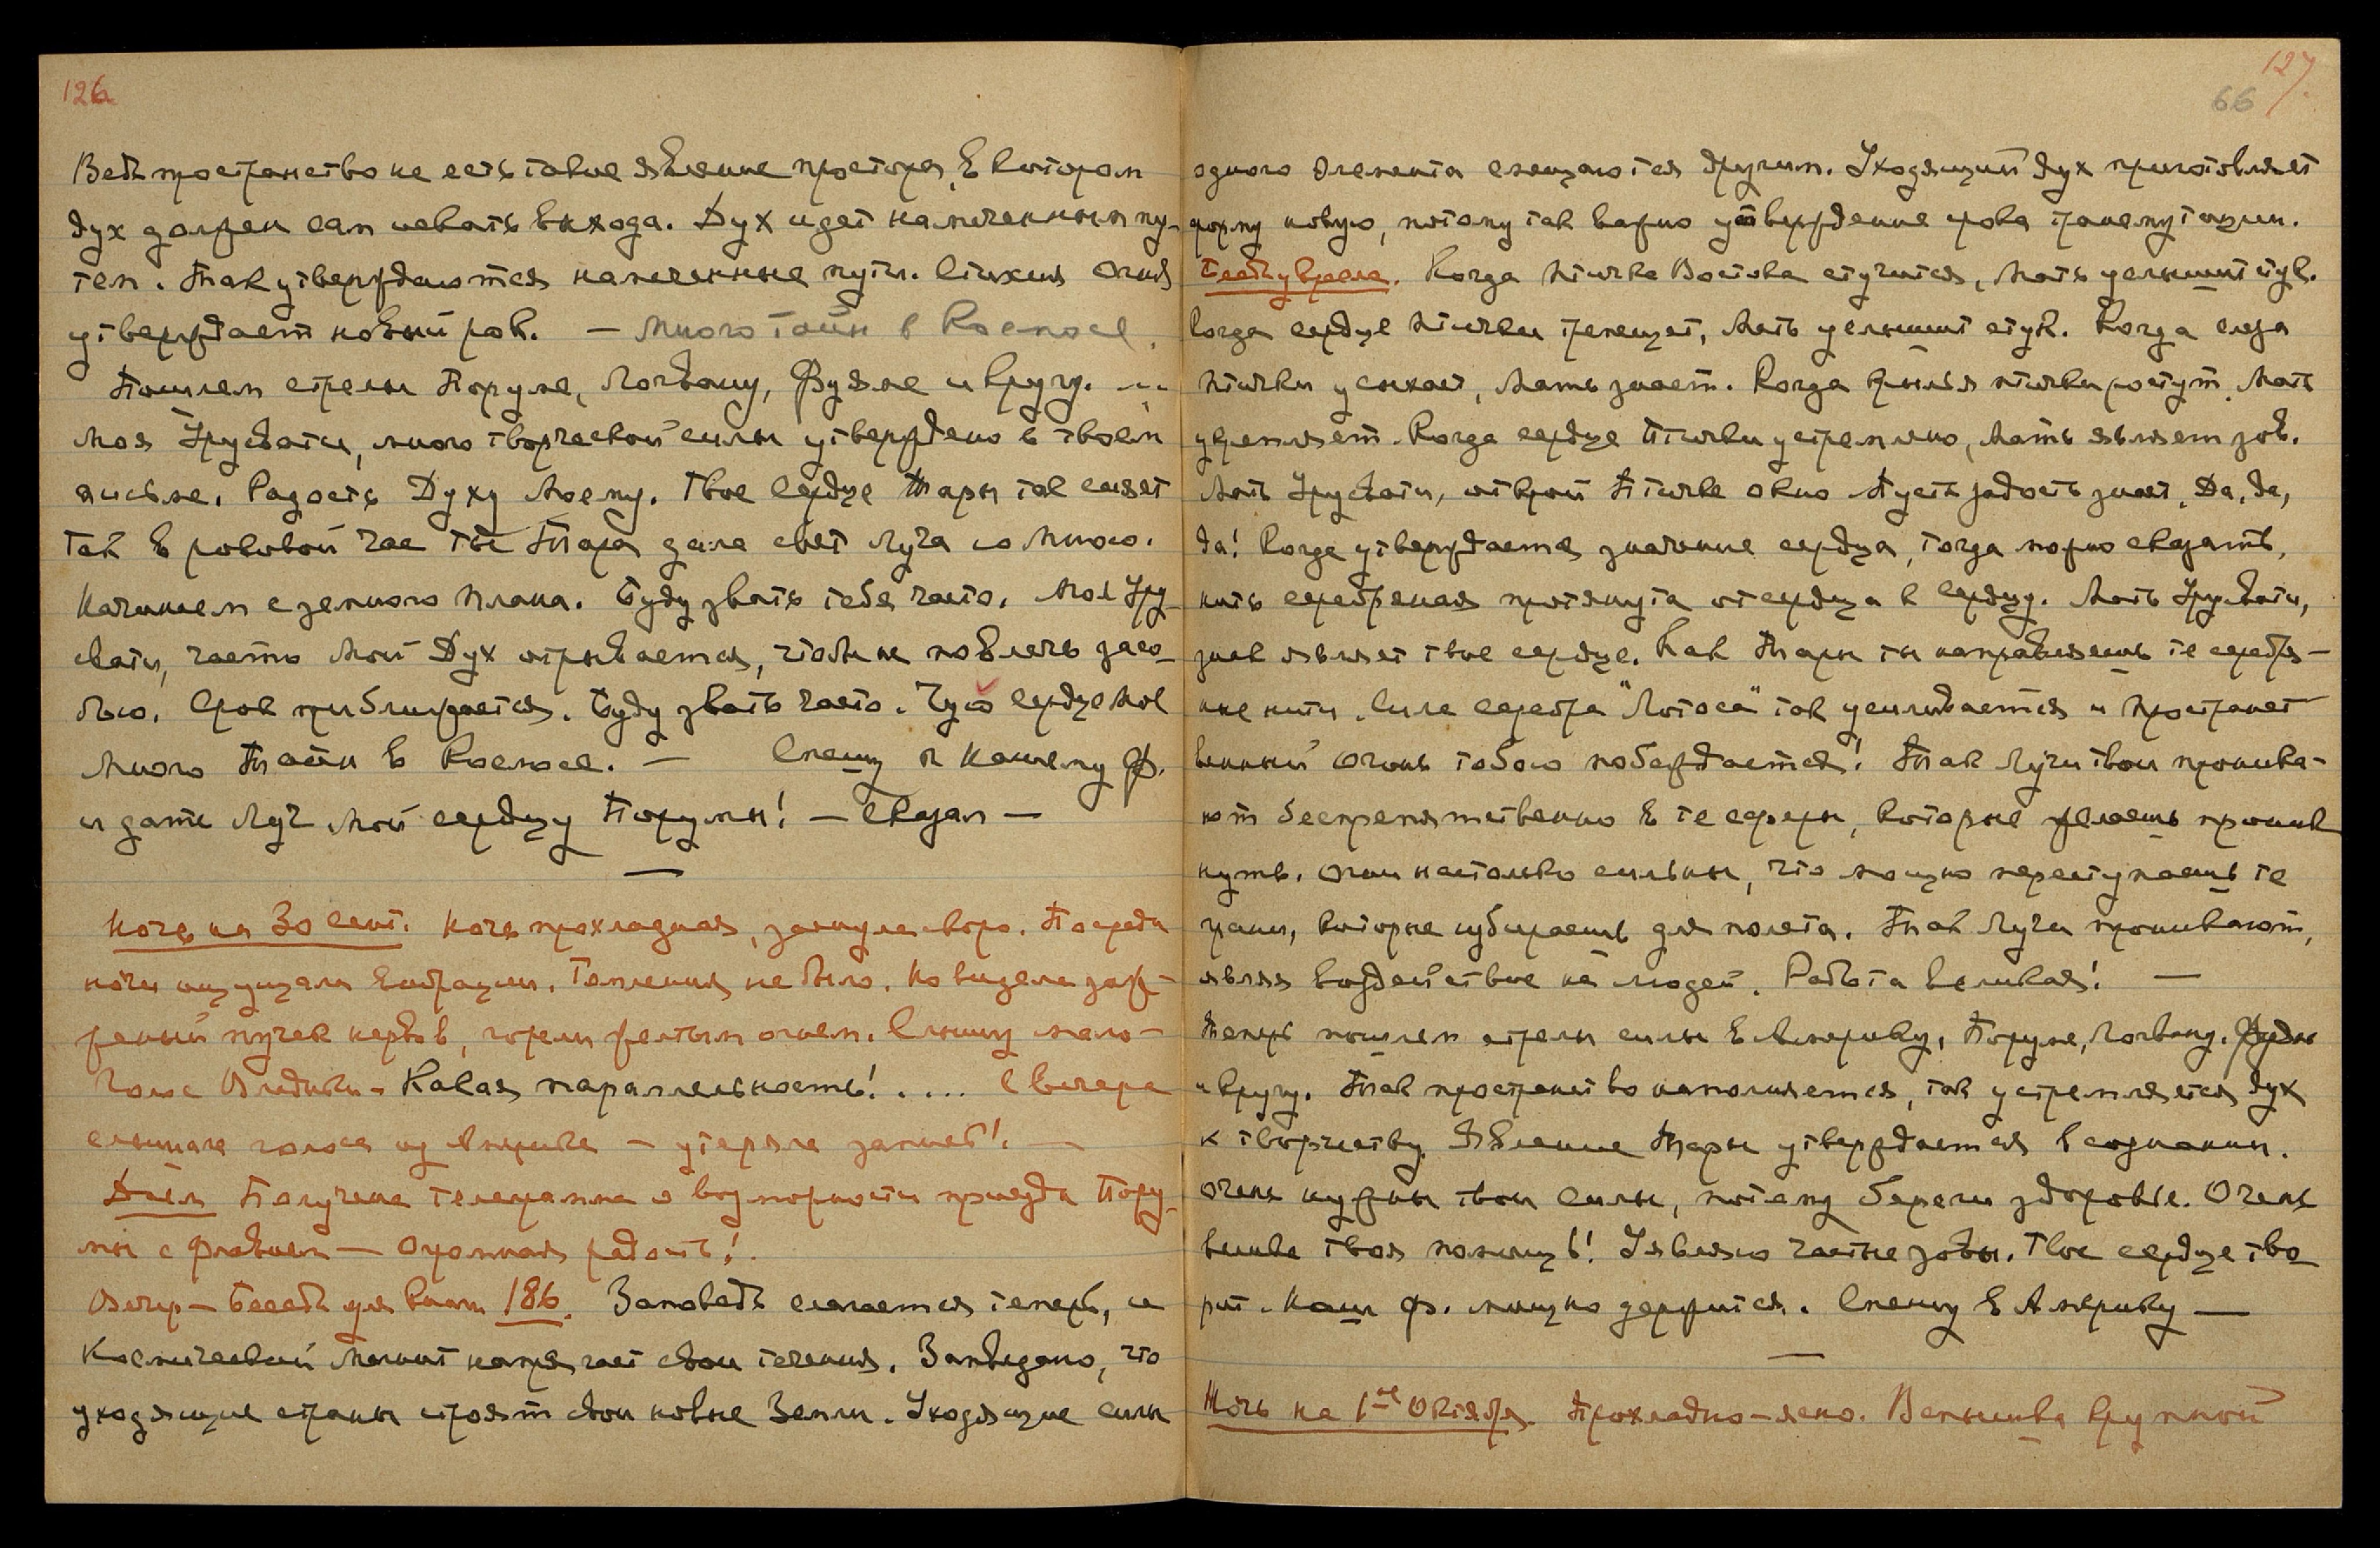 126
Ведь пространство не есть такое явление простора, в котором
дух должен сам искать выхода. Дух идет намеченным пу-
тем. Так утверждаются намеченные пути. Стихия Огня
утверждает новый рок. — Много тайн в Космосе.
Пошлем стрелы Поруме, Логвану, Фуяме и кругу.
Моя Урусвати, много творческой силы утверждено в твоем
письме. Радость Духу Моему. Твое Сердце Тары так сияет
Так в роковой час ты Тара дала свет Луча со Мною.
Начинаем с земного плана. Буду звать тебя часто. Моя Уру
свати, часто Мой Дух отрывается, чтобы не повлечь за со-
бою. Срок приближается. Буду звать часто. Чую сердце мое
Много Тайн в Космосе. — Спешу к нашему Ф.
и дать Луч Мой сердцу Порумы! — Сказал —
Ночь на 30 сент. Ночь прохладная, заснула скоро. Посреди
ночи ощущала вибрации. Темления не было. Но видела заж-
женный пучек нервов, горели желтым огнем. Слышу мало-
Голос Владыки — Какая параллельность!.... С вечера
слышала голоса из Америки — утеряла записи! —
Днем Получена телеграмма о возможности приезда Пору-
мы с Флавием — Огромная радость!
Вечер — Беседа для книги 186. Заповедь слагается теперь, и
Космический Магнит напрягает свои течения. Заповедано, что
уходящие страны строят свои новые Земли. Уходящие силы
127
66
одного элемента смещаются другим. Уходящий дух приготовляет
форму новую, потому так важно утверждение рока трансмутации.
Когда птичка Востока стучится, Мать услышит стук.
Когда сердце птички трепещет, Мать услышит стук. Когда слеза
птички усыхает, Мать знает. Когда крылья птички растут, Мать
укрепляет. Когда сердце Птички устремлено, Мать являет зов.
Мать Урусвати, открой Птичке окно Пусть радость знает, Да, да,
да! Когда утверждается значение сердца, тогда можно сказать,
нить серебряная протянута от сердца к сердцу. Мать Урусвати,
знак являет твое сердце. Как Тары ты направляешь те серебря-
ные нити. Сила серебра "Лотоса" так усиливается и Пространст
венный огонь тобою побеждается! Так Лучи твои проника-
ют беспрепятственно в те сферы, которые желаешь проник
нуть. Огни настолько сильны, что мощно переступаешь те
грани, которые избираешь для полета. Так Лучи проникают,
являя воздействие на людей. Работа великая! —
Теперь пошлем стрелы силы в Америку, Поруме, Логвану.
и кругу. Так пространство наполняется, так устремляется дух
к творчеству. Явление Тары утверждается в сознании.
Очень нужны твои силы, потому береги здоровье. Очень
велика твоя помощь! Уявляю частые зовы. Твое сердце тво
рит. Наш Ф. мощно держится. Спешу в Америку —
Ночь на 1ое Октября. Прохладно-ясно. Вспышка крупной